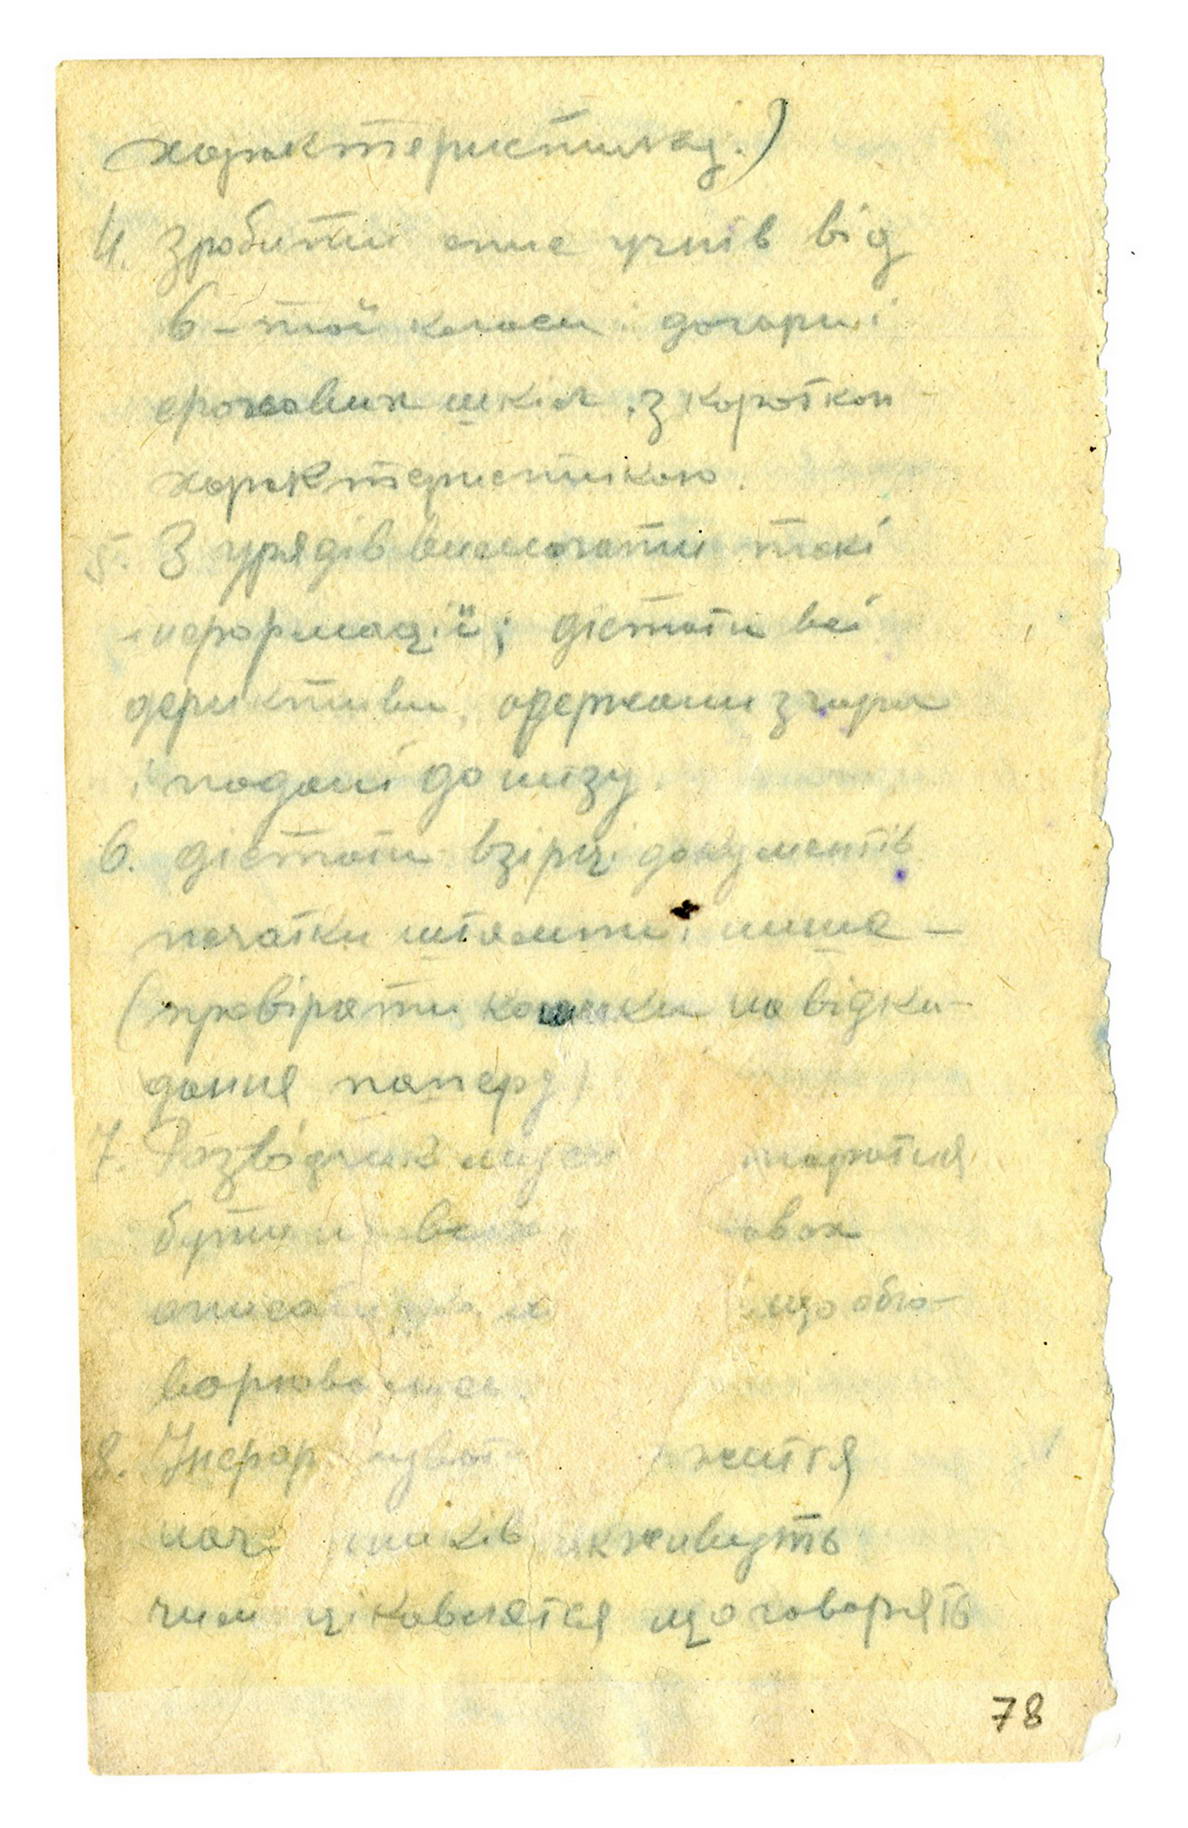 характеристика.)
4. Зробити спис учнів від
6-той класи і догори і
фахових шкіл. з короткою
характеристикою.
5. З урядів вимагати такі
інформації; дістати всі
дериктиви, одержани згори
і подані до низу.
6. дістати взірці документів
печатки штампи і инше –
(провіряти кошики на відки-
дання паперу)
7. Розвідчик мусе старатися
бути
описати що обго-
ворювалось.
8. Інфор життя
як живуть
чим цікавлятся що говорять
78